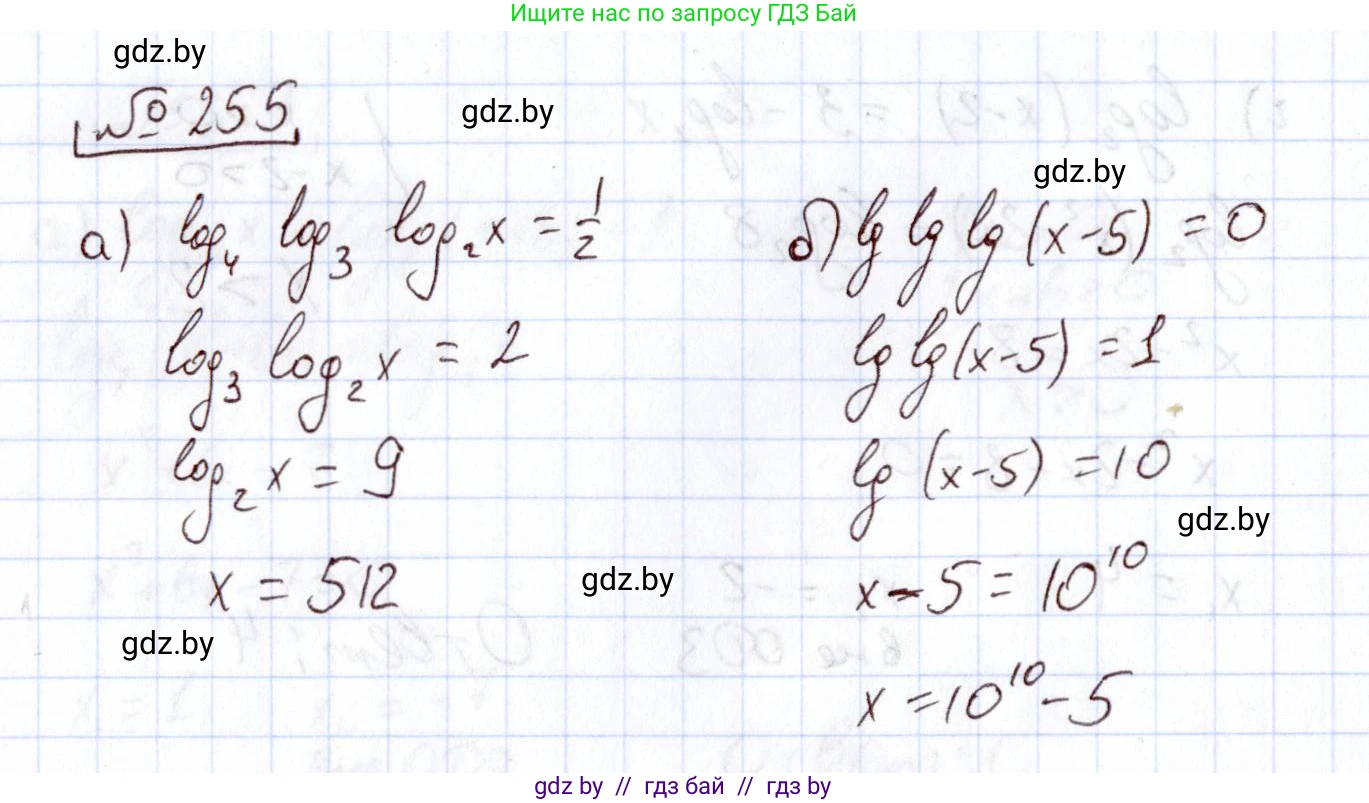 Ищите нас по запросу ГДЗ Бай
gdz.by
№ 255
gdz.by
gdz.by
а) log₄ log₃ log₂ x = 1/2
log₃ log₂ x = 2
log₂ x = 9
x = 512
gdz.by
gdz.by
б) lg lg lg (x-5) = 0
lg lg (x-5) = 1
lg (x-5) = 10
gdz.by
x - 5 = 10¹⁰
x = 10¹⁰ - 5
gdz by // гдз бай // гдз by